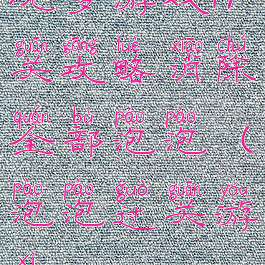 guān gōng lüè xiāo chú
关攻略消除
quán bù pào pào
全部泡泡（
pào pào guò guān yóu
泡泡过关游
xì